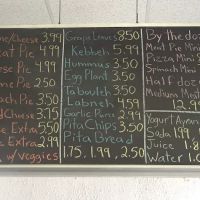 me/Cheese 3.99
eat Pie 4.99
se Pie 4.99
me Pie 4.50
ach Pie 3.50
dCheese 3.75
se Extra 5.50
Extra 2.99
w/veggies
Grape Leaves 8.50
Kebbeh 5.99
Hummus 3.50
Egg Plant 3.50
Tabouleh 3.50
Labneh 4.59
Garlic Puree 2.99
Pita Chips 3.50
Pita Bread
1.75, 1.99, 2.50
By the doz
Meat Pie Mini
Pizza Mini
Spinach Mini
Half doz
Medium Meat
12.99
Yogurt Ayran
Soda 1.99
Juice 1.8
Water 1.0